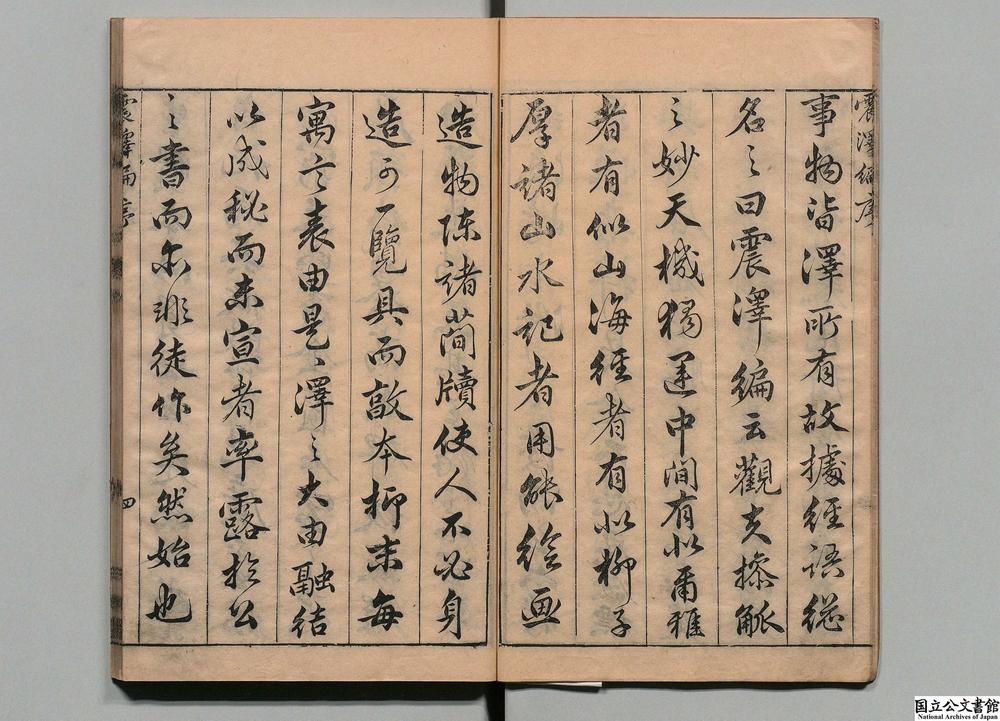 震澤編序
事物皆澤所有故據經語總
名之曰震澤編云觀夫搽觚
之妙天機獨運中间有似爾雅
者有似山海經者有似柳子
厚諸山水記者用能繪画
造物陳諸蕳牘使人不必身
造可一覽具而敦本抑末每
寓言表由是〻澤之大由融結
以成秘而未宣者率露於公
之書而尔非徒作矣然始也
震澤編序
四
国立公文書館
National Archives of Japan